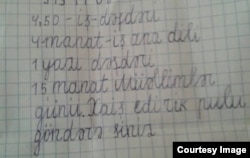 4,50 - iş-dəftəri
4 manat-iş ana dili
1 yazı dəftəri
15 manat Müəllimlər
günü. Xaiş edirik pulu
göndərə siniz
Courtesy Image